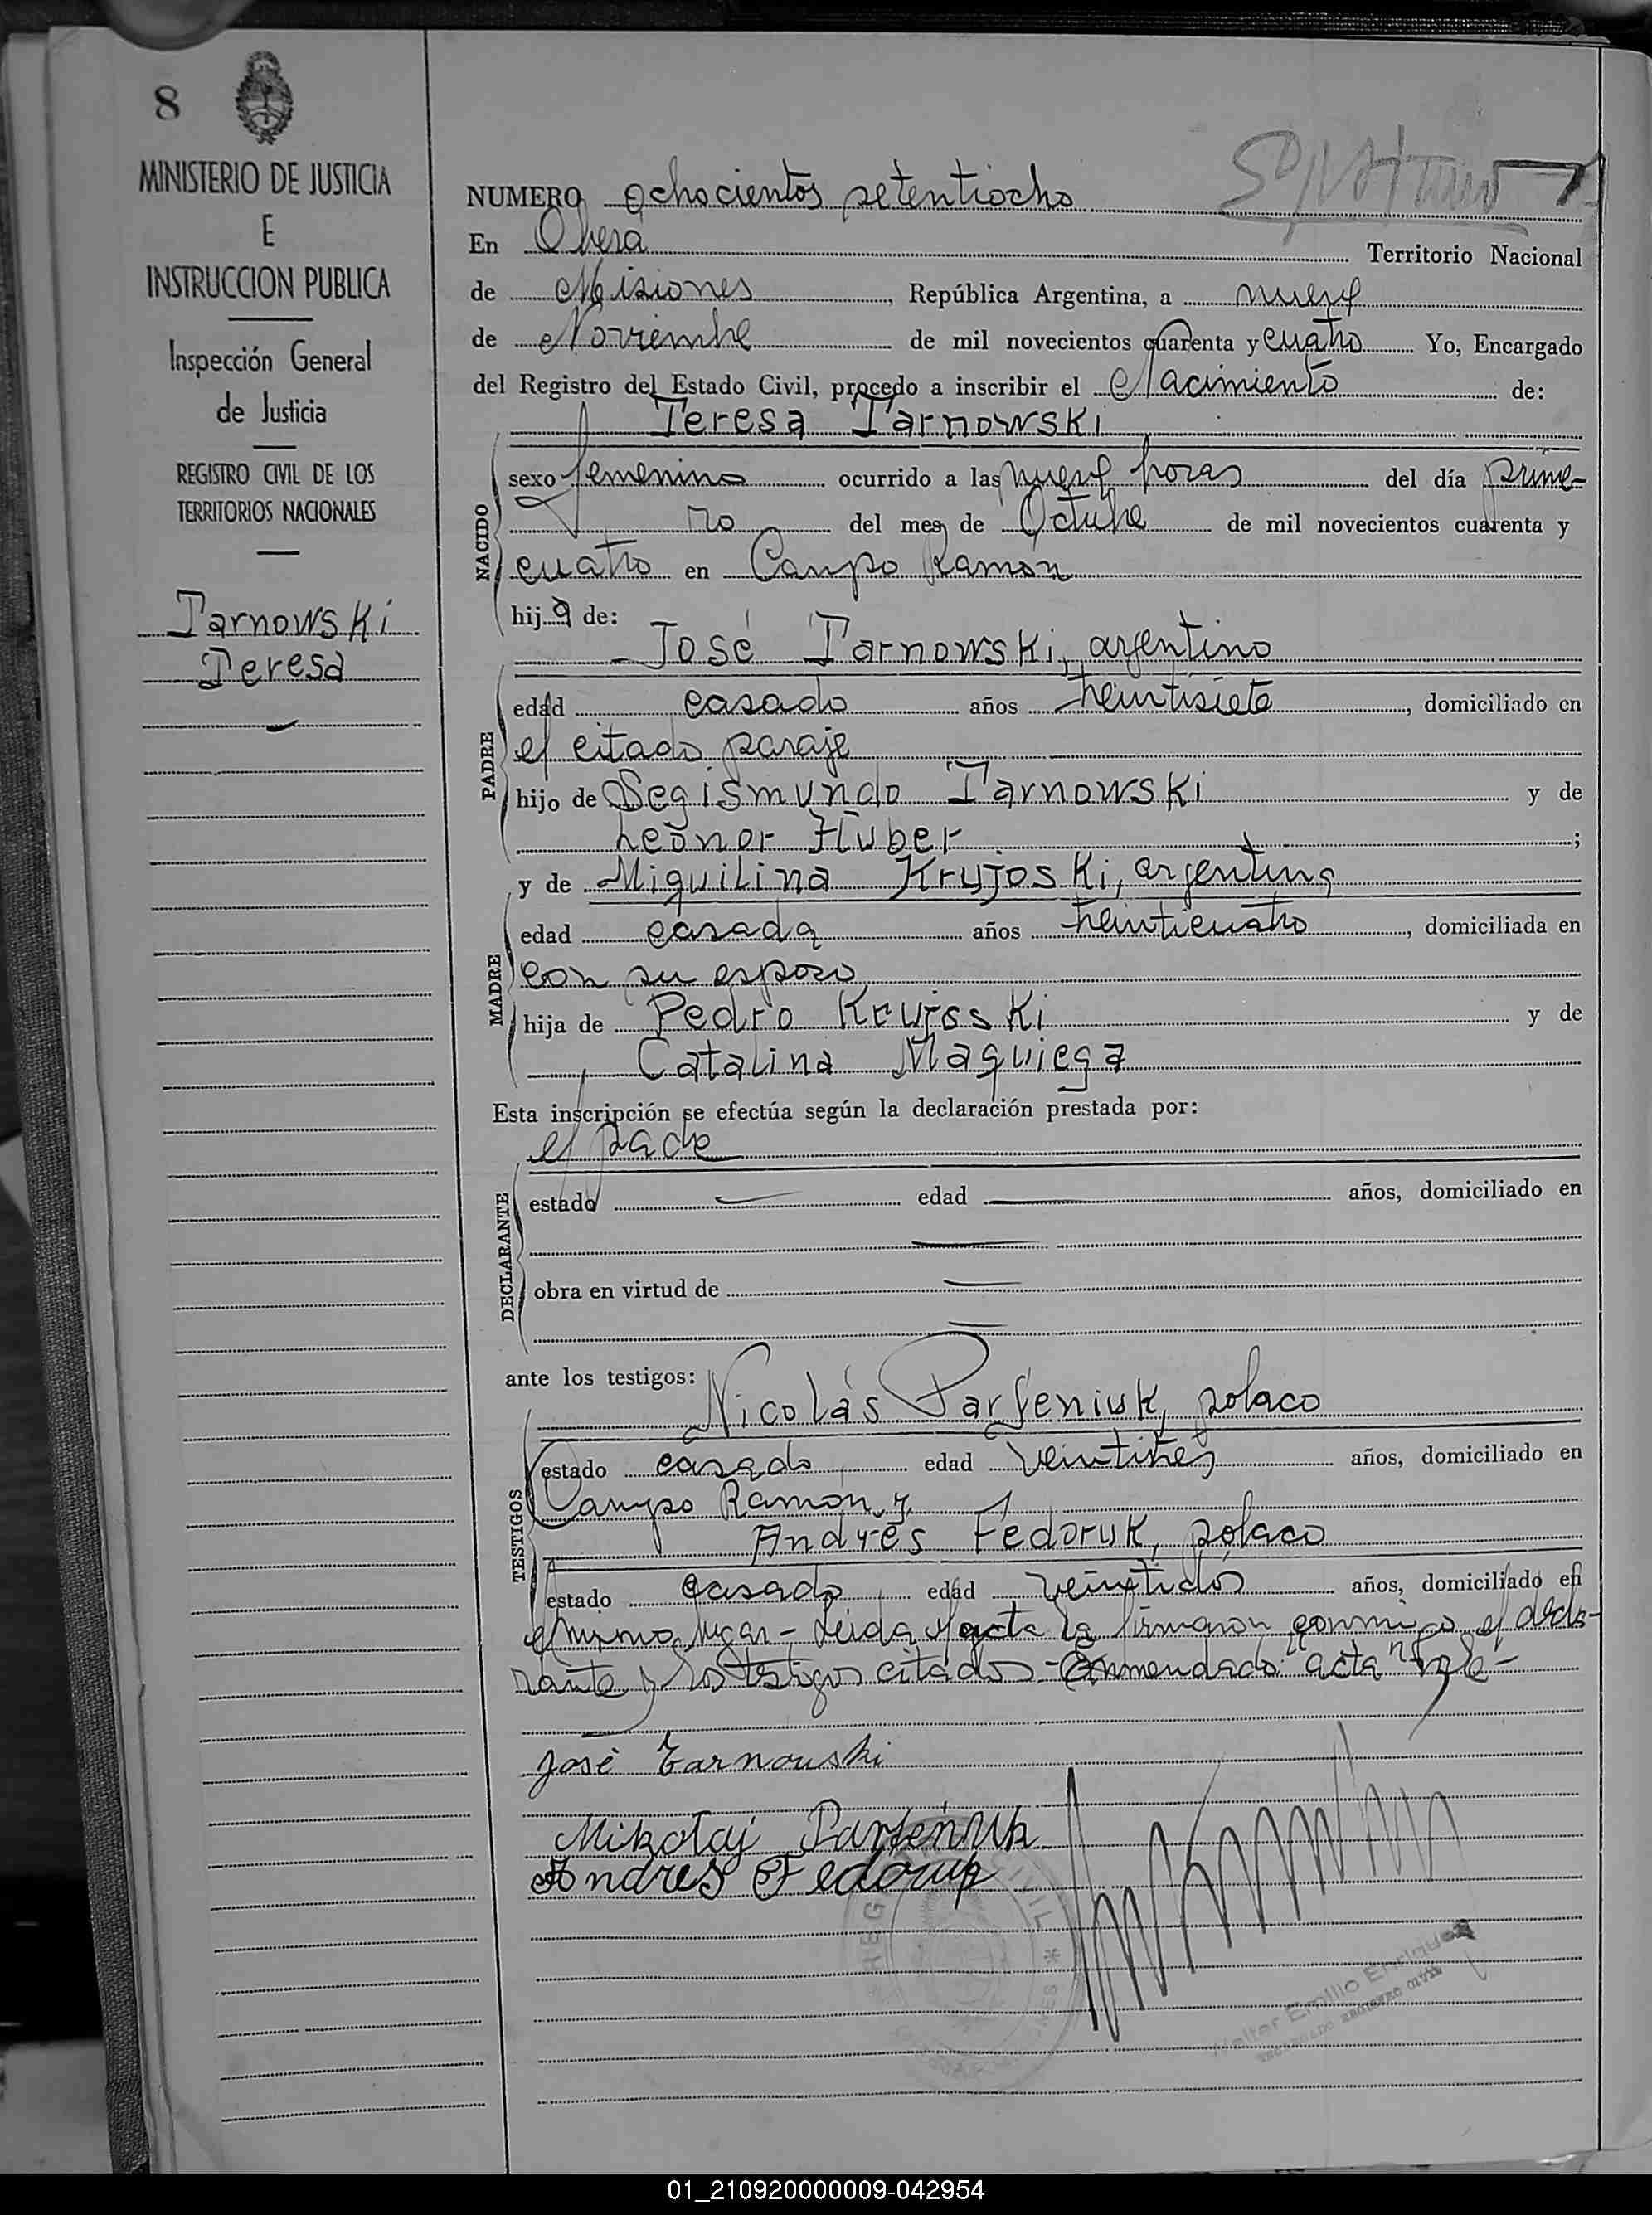 8
MINISTERIO DE JUSTICIA
E
INSTRUCCION PUBLICA
Inspección General
de Justicia
REGISTRO CIVIL DE LOS
TERRITORIOS NACIONALES
Tarnowski
Teresa
NUMERO ochocientos setentiocho
En Oberá Territorio Nacional
de Misiones, República Argentina, a nueve
de Noviembre de mil novecientos cuarenta y cuatro Yo, Encargado
del Registro del Estado Civil, procedo a inscribir el Nacimiento de:
Teresa Tarnowski
NACIDO
sexo femenino ocurrido a las nueve horas del día prime-
ro del mes de Octubre de mil novecientos cuarenta y
cuatro en Campo Ramon
hija de:
José Tarnowski, argentino
PADRE
edad casado años veintisiete, domiciliado en
el citado paraje
hijo de Segismundo Tarnowski y de
Leonor Huber ;
y de Miquilina Krujoski, argentina
MADRE
edad casada años veinticuatro, domiciliada en
con su esposo
hija de Pedro Krujoski y de
Catalina Maquiega
Esta inscripción se efectúa según la declaración prestada por:
el padre
DECLARANTE
estado edad años, domiciliado en
obra en virtud de
ante los testigos:
Nicolás Parfeniuk, polaco
TESTIGOS
estado casado edad veintitres años, domiciliado en
Campo Ramon y
Andrés Fedoruk, polaco
estado casado edad veintidos años, domiciliado en
el mismo lugar - Leida el acta la firmaron conmigo el decla-
rante y los testigos citados - Enmendado "acta" vale -
José Tarnouski
Mikołaj Parfeniuk
Andres Fedoruk
Walter Emilio Enriquez
ENCARGADO REGISTRO CIVIL
01_210920000009-042954